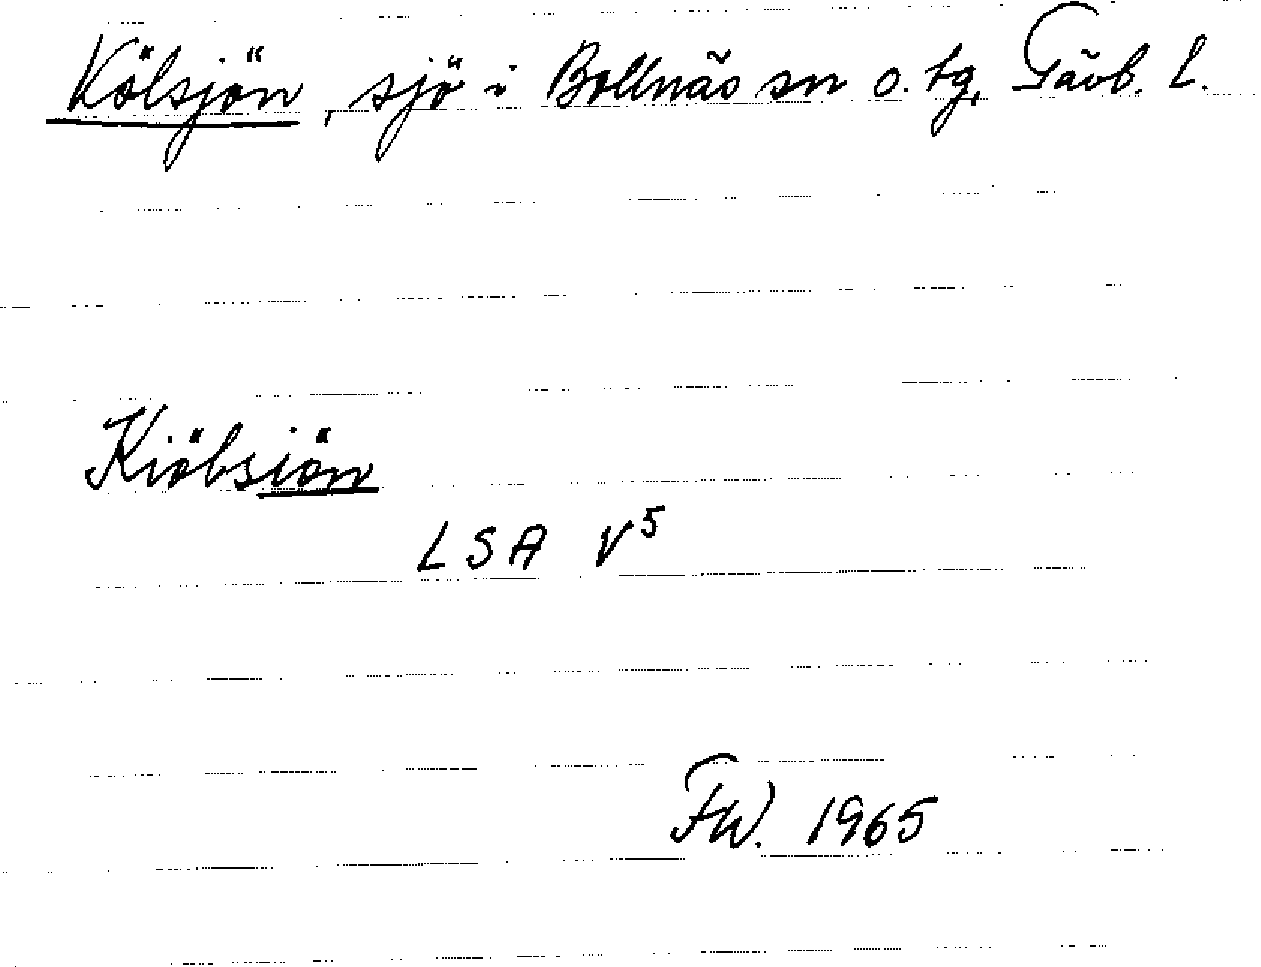 Kölsjön, sjö i Bollnäs sn o. tg, Gävb. L.
Kiölsiön
LSA V5
FW. 1965